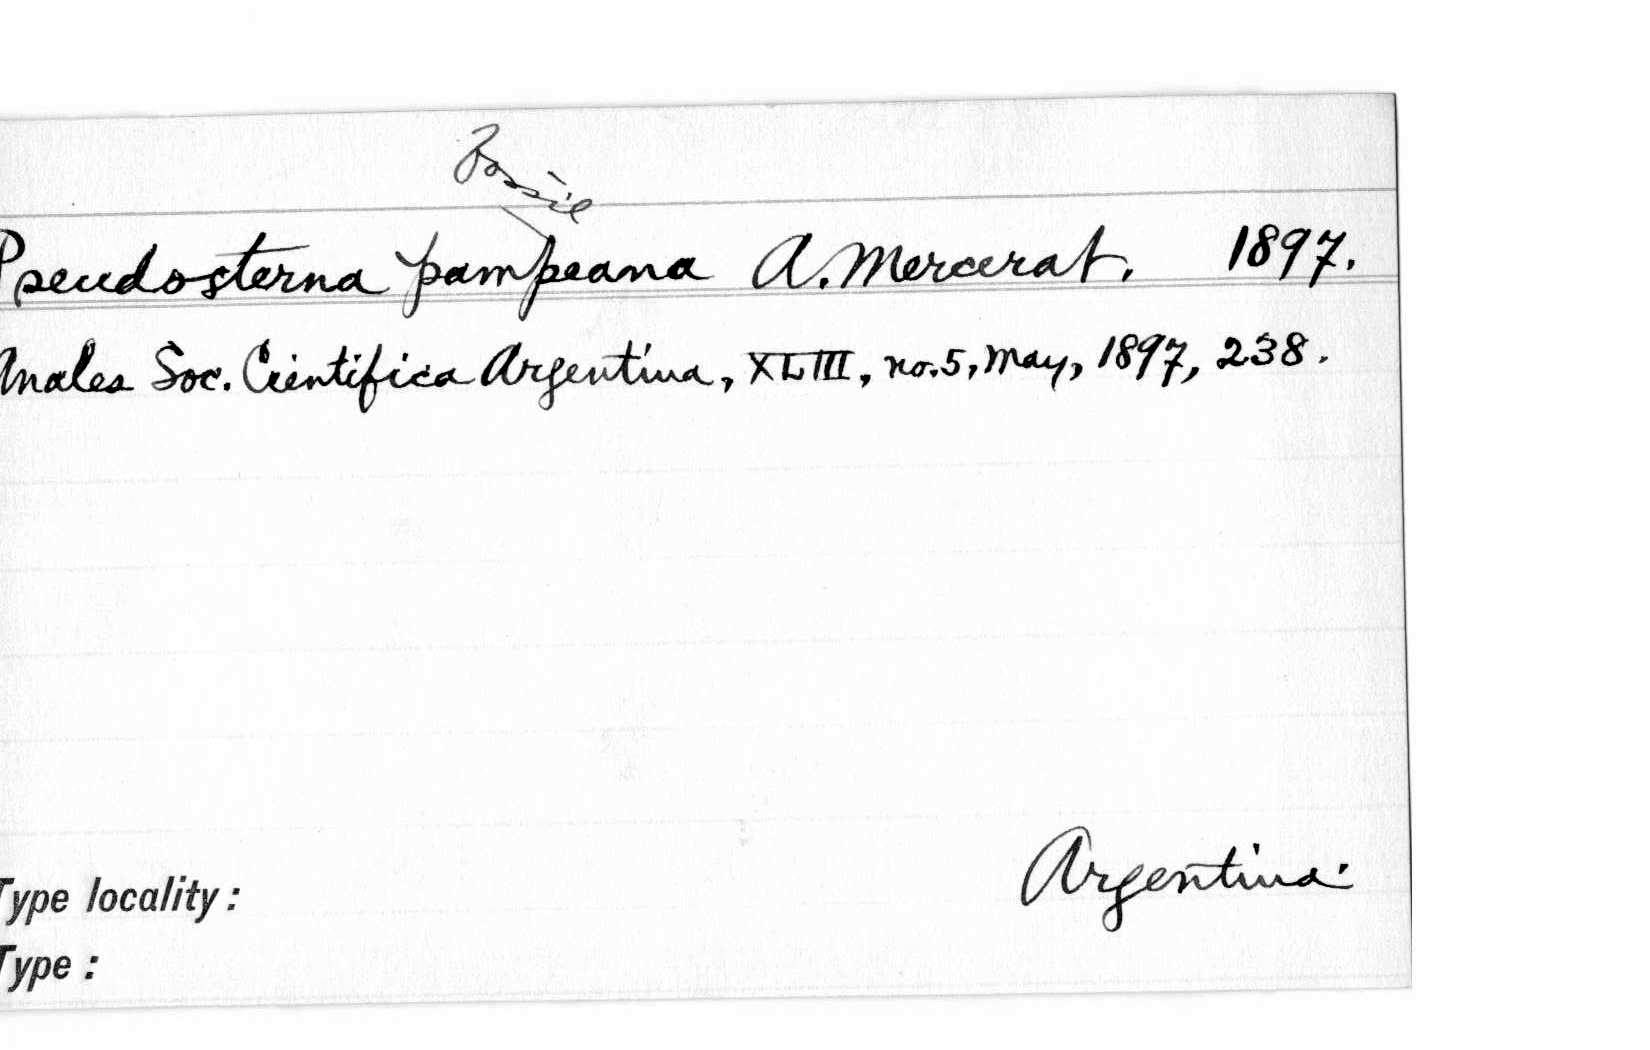 Fossil
Pseudosterna pampeana A. Mercerat. 1897.
Anales Soc. Cientifica Argentina, XLIII, no. 5, May, 1897, 238.
Argentina.
Type locality:
Type: